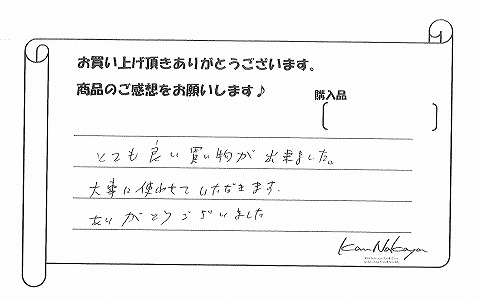 お買い上げ頂きありがとうございます。
商品のご感想をお願いします♪
購入品
とても良い買い物が出来ました。
大事に使わせていただきます.
ありがとうございました
Kan Nakaya